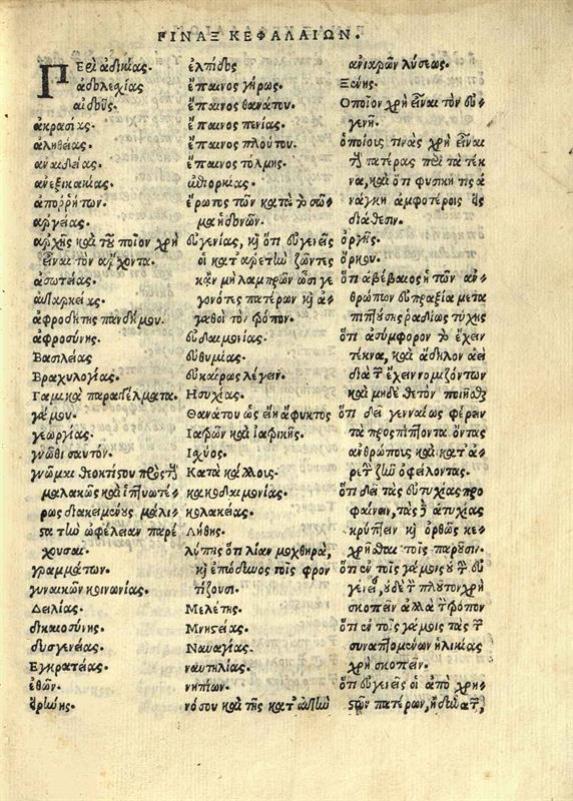 ΠΙΝΑΞ ΚΕΦΑΛΑΙΩΝ.
ΠΕρὶ ἀδικίας.
ἀδολεχίας
αἰδοῦς.
ἀκρασίας.
ἀληθείας.
ἀναιδείας.
ἀνεξικακίας.
ἀποῤῥήτων.
ἀργείας.
ἀρχῆς καὶ τοῦ ποῖον χρὴ
εἶναι τὸν ἄρχοντα.
ἀσωτείας.
αὐταρκείας.
ἀφροδίτης πανδήμου.
ἀφροσύνης.
Βασιλείας
Βραχυλογίας.
Γαμικὰ παραγγέλματα.
γάμου.
γεωργίας.
γνῶθι σαυτόν.
γνῶμαι θεοκτίστου πρὸς τοὺς
μαλακῶς καὶ
ρως διακειμένους μάλι-
στα τὴν ὠφέλειαν παρέ
χουσαι.
γραμμάτων.
γυναικῶν κοινωνίας.
Δειλίας.
δικαιοσύνης.
δυσγενείας.
Ἐγκρατείας.
ἐθῶν.
εἰρήνης.
ἐλπίδος
ἔπαινος γήρως.
ἔπαινος θανάτου.
ἔπαινος πενίας.
ἔπαινος πλούτου.
ἔπαινος τόλμης.
ἐπιορκίας.
ἔρωτος τῶν κατὰ τὸ σῶ-
μα ἡδονῶν.
εὐγενίας, καὶ ὅτι εὐγενεῖς
οἱ κατ ἀρετὴν ζῶντες
κἂν μὴ λαμπρῶν ὦσι γε
γονότες πατέρων καὶ ἀ-
γαθοὶ τὸν τρόπον.
εὐδαιμονίας.
εὐθυμίας.
εὐκαίρως λέγειν.
Ησυχίας.
Θανάτου ὡς εἴη ἄφυκτος
Ἰατρῶν καὶ ἰατρικῆς.
Ἰσχύος.
Κατὰ κάλλους.
κακοδαιμονίας.
κολακείας.
Λήθης.
λύπης ὅτι λίαν μοχθηρὰ,
καὶ ἐπώδυνος τοῖς φρον
τίζουσι.
Μελέτης.
Μνηστείας.
Ναυαγίας.
ναυτιλίας.
νηπίων.
νόσου καὶ τῆς κατ αὐτὴν
ἀνιαρῶν λύσεως.
Ξένης.
Οποῖον χρὴ εἶναι τὸν εὐ-
γενῆ.
ὁποίους τινὰς χρὴ εἶναι
τοὺς πατέρας περὶ τὰ τέκ
να, καὶ ὅτι φυσική τις ἀ
νάγκη ἀμφοτέροις εἰς
διάθεσιν.
ὀργῆς.
ὅρκου.
ὅτι ἀβέβαιος ἡ τῶν ἀν-
θρώπων εὐπραξία μετα
πιπτούσης ῥᾳδίως τύχης
ὅτι ἀσύμφορον τὸ ἔχειν
τέκνα, καὶ ἄδηλον ἀεὶ
καὶ μηδὲ θετὸν
ὅτι δεῖ γενναίως φέρειν
τὰ προσπίπτοντα ὄντας
ἀνθρώπους καὶ κατ ἀ-
ρετὴν ζῆν ὀφείλοντας.
ὅτι δεῖ τὰς εὐτυχίας προ
φαίνειν, τὰς δὲ ἀτυχίας
κρύπτειν καὶ ὀρθῶς κε-
χρῆσθαι τοῖς παροῦσιν.
ὅτι ἐν τοῖς γάμοις οὐ τὴν εὐ
γένειαν, οὐδὲ τὸν πλοῦτον χρὴ
σκοπεῖν ἀλλὰ τὸν τρόπον
ὅτι ἐν τοῖς γάμοις τὰς τῶν
συναπτομένων ἡλικίας
χρὴ σκοπεῖν.
ὅτι εὐγενεῖς οἱ ἀπὸ χρη-
στῶν πατέρων,